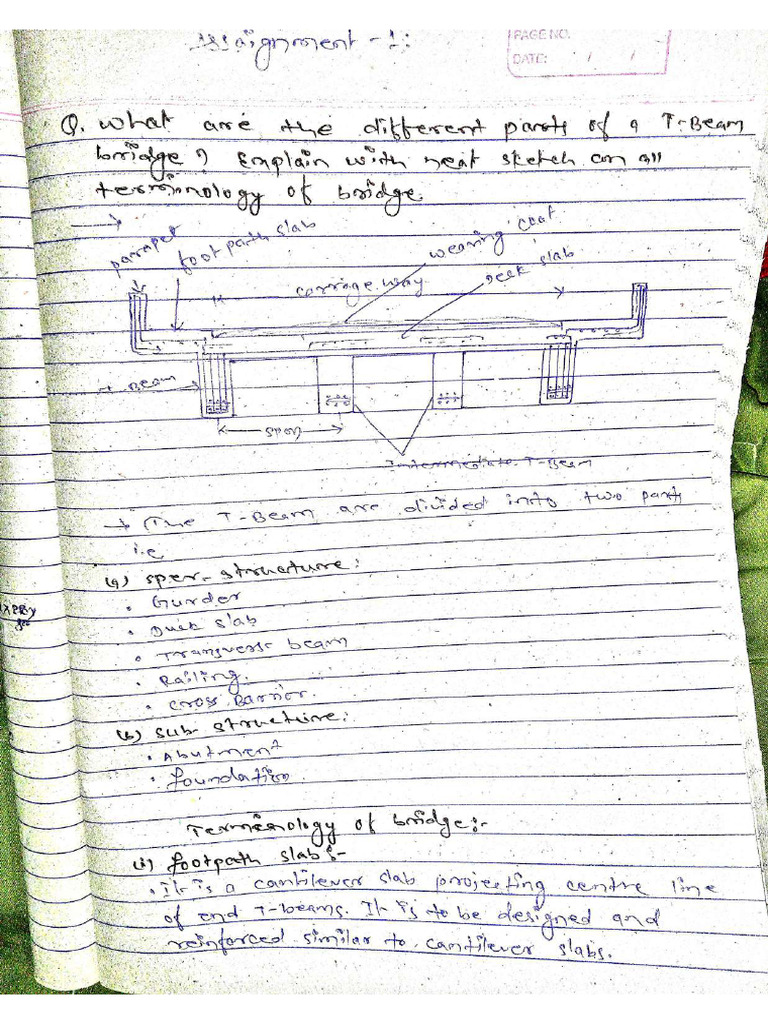 Assaignment - 1:
PAGE NO.
DATE: / /
Q. What are the different parts of a T-Beam
bridge? Explain with neat sketch on all
terminology of bridge.
parapet
footpath slab
wearing coat
carriage way
deck slab
T Beam
span
Intermediate T-Beam
→ The T-Beam are divided into two parts
i.e
(a) Sper-structure:
• Gurder
• Duck slab
• Transverse beam
• Railing.
• Cross Barrier.
(b) Sub structure:
• Abutment
• foundation
Terminology of bridge:-
(i) footpath slab:-
• It is a cantilever slab projecting centre line
of end T-beams. It is to be designed and
reinforced similar to cantilever slabs.